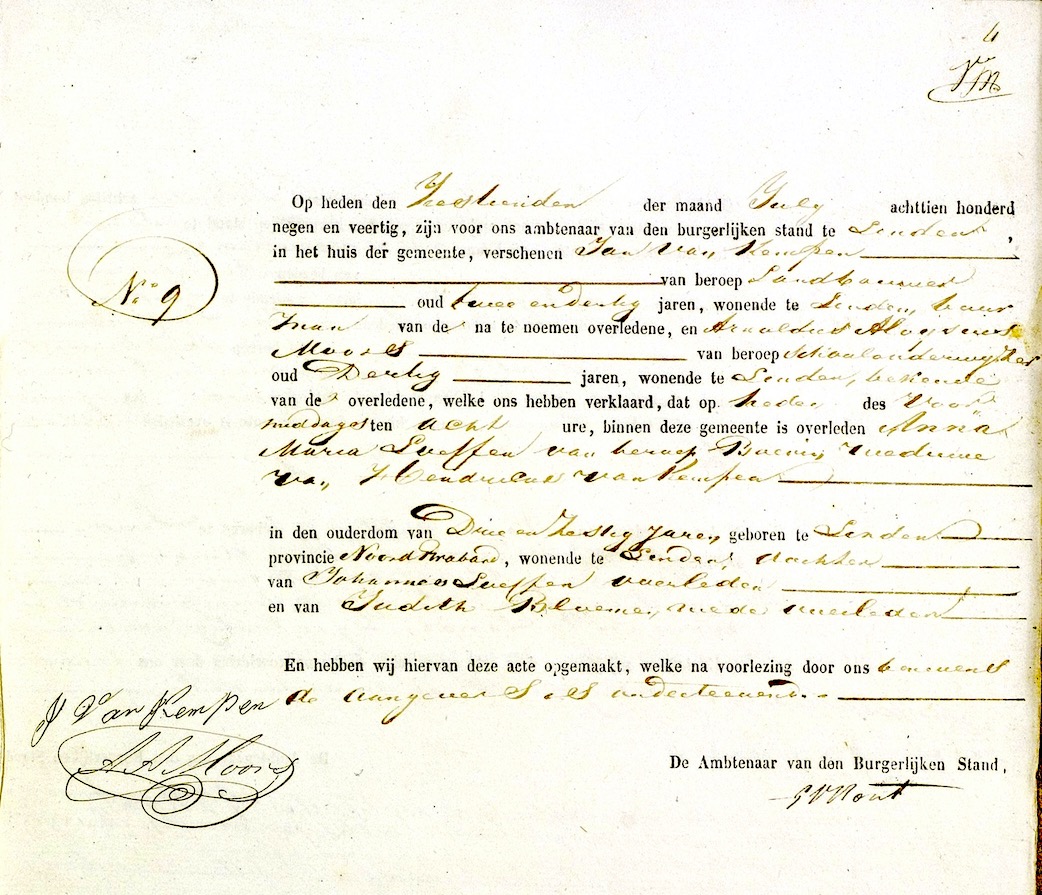 4
Op heden den Zestienden der maand July achttien honderd
negen en veertig, zijn voor ons ambtenaar van den burgerlijken stand te Linden,
in het huis der gemeente, verschenen Jan van Kempen
van beroep Landbouwer
oud twee en dertig jaren, wonende te Linden, buur
man van de na te noemen overledene, en Arnoldus Aloysius
Moors van beroep schoolonderwyzer
oud Dertig jaren, wonende te Linden, bekende
van de overledene, welke ons hebben verklaard, dat op heden des voor
middags ten acht ure, binnen deze gemeente is overleden Anna
Maria van beroep Boerin, weduwe
van Hendricus van Kempen
in den ouderdom van Drie en Zestig jaren, geboren te Linden
provincie Noord Braband, wonende te Linden, dochter
van Johannes overleden
en van Judith Bloemen, mede overleden
En hebben wij hiervan deze acte opgemaakt, welke na voorlezing door ons benevens
de aangevers is onderteekend.
No. 9
J Van Kempen
A A Moors
De Ambtenaar van den Burgerlijken Stand,